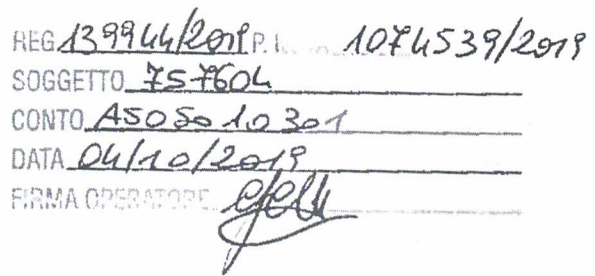 REG 139944/2019 P. 1074539/2019
SOGGETTO 757604
CONTO A505010301
DATA 04/10/2019
FIRMA OPERATORE